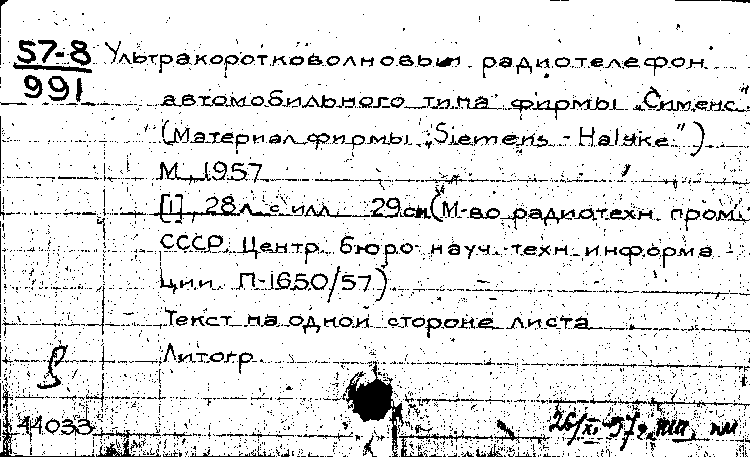 57-8
991
Ультракоротковолновый радиотелефон
автомобильного типа фирмы „Сименс"
(Материал фирмы „Siemens - Halske")
М., 1957
[1], 28 л. с илл. 29 см (М-во радиотехн. пром.
СССР. Центр. бюро науч.-техн. информа
ции. П-1650/57)
Текст на одной стороне листа
Литогр.
44033
26/XI-57г.